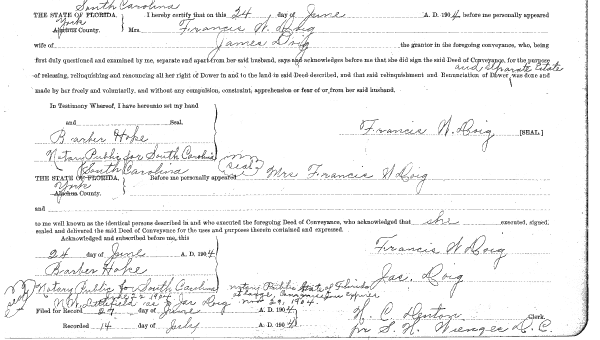 South Carolina
THE STATE OF FLORIDA, } I hereby certify that on this 24 day of June A. D. 1904 before me personally appeared
York
Alachua County. } Mrs. Francis W. Doig
wife of James Doig the grantor in the foregoing conveyance, who, being
first duly questioned and examined by me, separate and apart from her said husband, says and acknowledges before me that she did sign the said Deed of Conveyance, for the purpose
and separate Estate
of releasing, relinquishing and renouncing all her right of Dower in and to the land in said Deed described, and that said relinquishment and Renunciation of Dower was done and
made by her freely and voluntarily, and without any compulsion, constraint, apprehension or fear of or from her said husband.
In Testimony Whereof, I have hereunto set my hand
and Seal,
Barber Hope Francis W. Doig [SEAL]
Notary Public for South Carolina seal
South Carolina
THE STATE OF FLORIDA, } Before me personally appeared Mrs Francis W Doig
York
Alachua County.
and
to me well known as the identical persons described in and who executed the foregoing Deed of Conveyance, who acknowledged that she executed, signed,
sealed and delivered the said Deed of Conveyance for the uses and purposes therein contained and expressed.
Acknowledged and subscribed before me, this
24 day of June A. D. 1904 Francis W Doig
Barber Hope Jas. Doig
seal Notary Public for South Carolina Notary Public State of Florida
at large, commission expires
N. W. Littlefield as to Jas Doig Nov 29, 1904.
Filed for Record 27 day of June A. D. 1904 H. C. Denton Clerk.
Recorded 14 day of July A. D. 1904 for S. H. Wienges D. C.